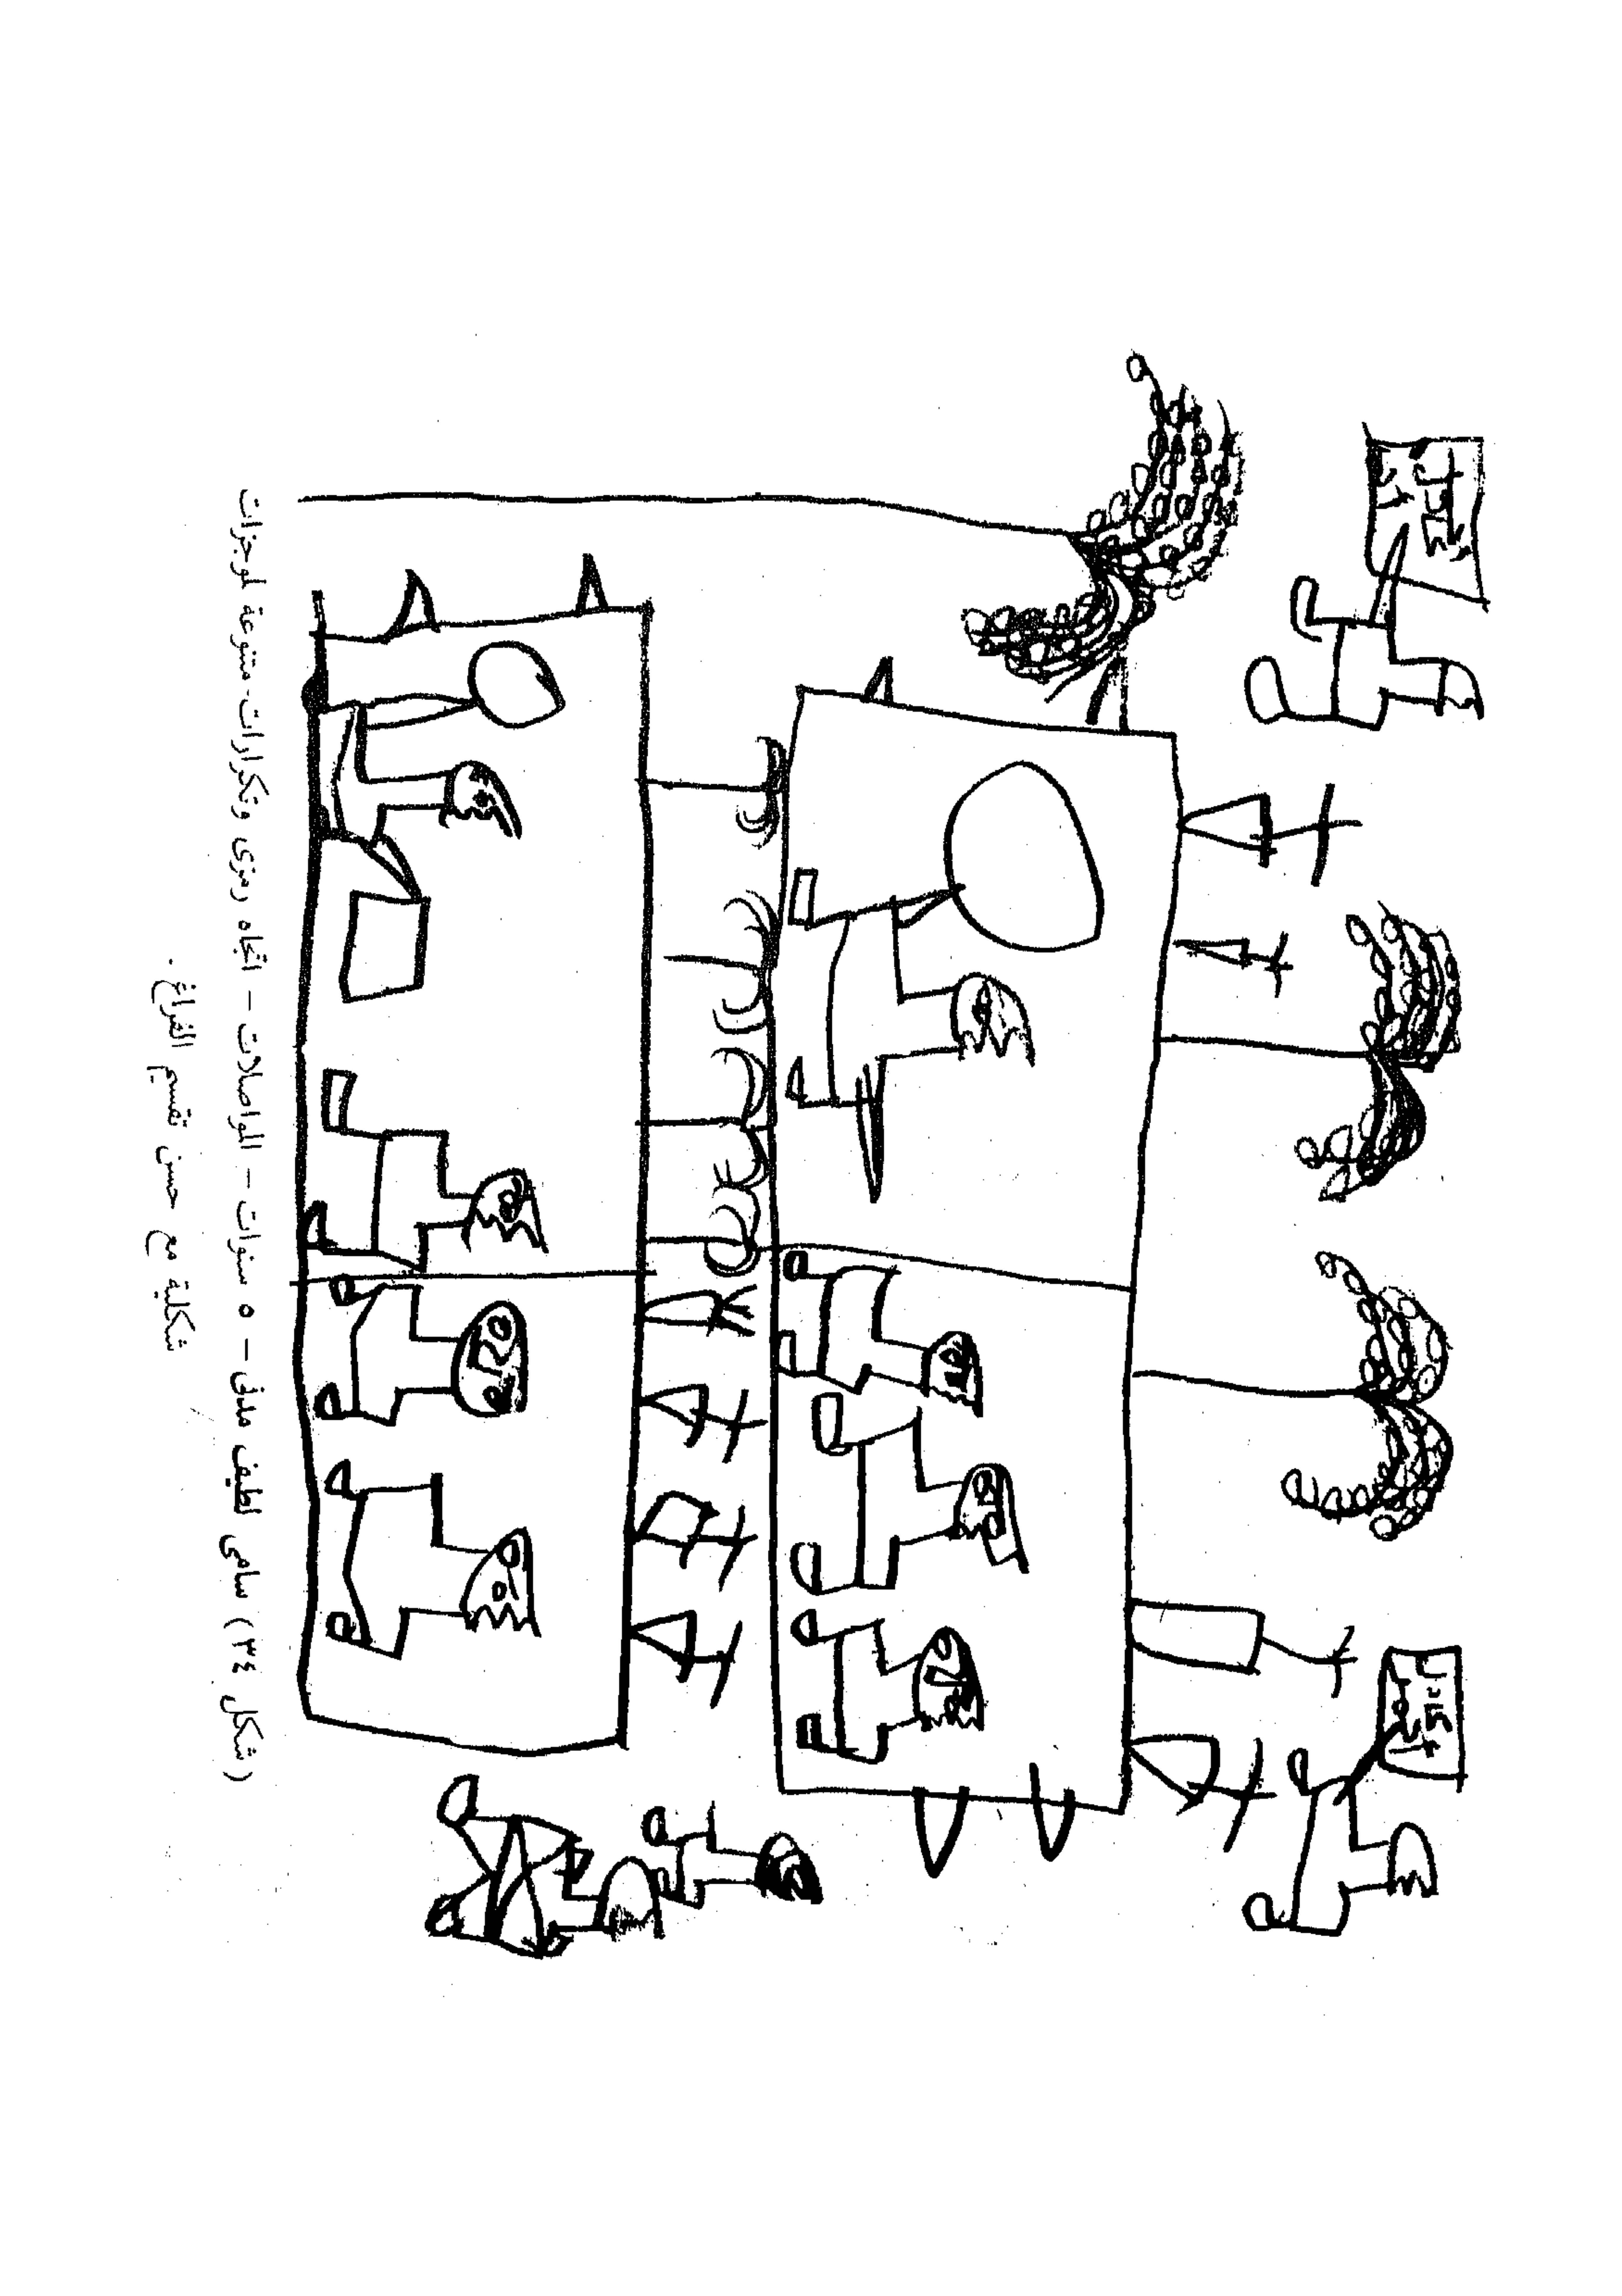 (شكل ٣٤) سامى لطيف ملدق – ٥ سنوات – المواصلات – اتجاه رمزى وتكرارات متنوعة لموجزات
شكلية مع حسن تقسيم الفراغ .